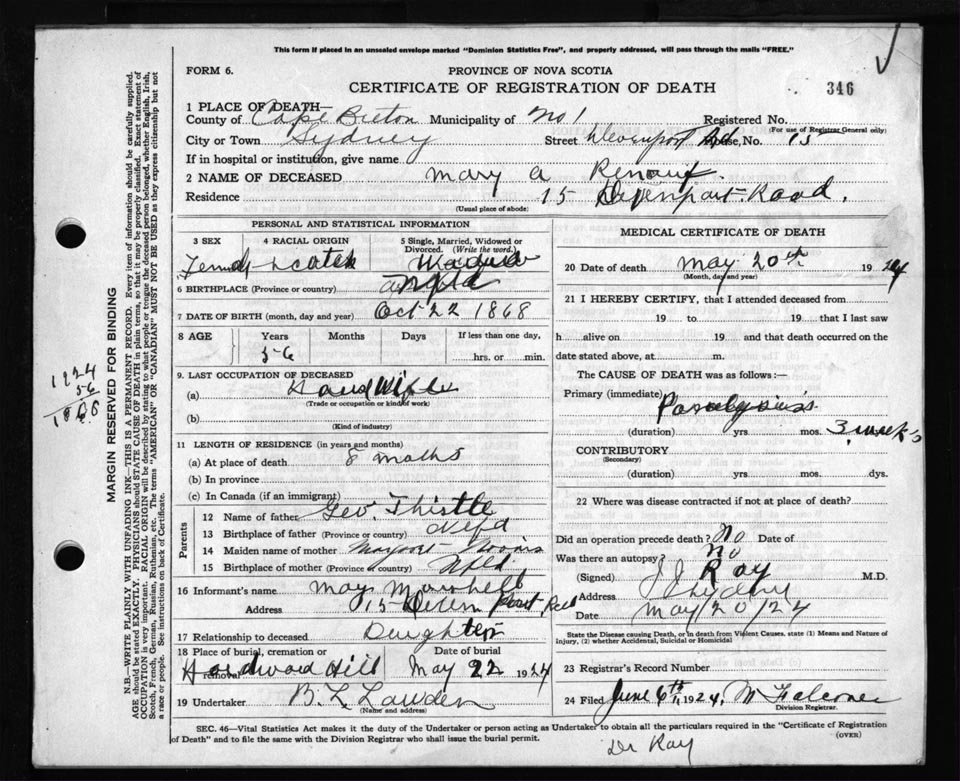 This form if placed in an unsealed envelope marked "Dominion Statistics Free", and properly addressed, will pass through the mails "FREE."
FORM 6.
PROVINCE OF NOVA SCOTIA
CERTIFICATE OF REGISTRATION OF DEATH
346
1 PLACE OF DEATH—
County of Cape Breton Municipality of No 1 Registered No.
(For use of Registrar General only)
City or Town Sydney Street Devenport Rd House, No. 15
If in hospital or institution, give name
2 NAME OF DECEASED Mary a Renouf.
Residence 15 Devenport Road.
(Usual place of abode)
PERSONAL AND STATISTICAL INFORMATION
3 SEX 4 RACIAL ORIGIN 5 Single, Married, Widowed or Divorced. (Write the word.)
Female Scotch
6 BIRTHPLACE (Province or country) Nfld
7 DATE OF BIRTH (month, day and year) Oct 22 1868
8 AGE Years Months Days If less than one day,
56 hrs. or min.
9. LAST OCCUPATION OF DECEASED
(a) Housewife
(Trade or occupation or kind of work)
(b)
(Kind of industry)
11 LENGTH OF RESIDENCE (in years and months)
(a) At place of death 8 moths
(b) In province
(c) In Canada (if an immigrant)
Parents
12 Name of father Geo. Thistle
13 Birthplace of father (Province or country) Nfld
14 Maiden name of mother
15 Birthplace of mother (Province or country) Nfld.
16 Informant's name May Marshell
Address 15 Port Rd
17 Relationship to deceased Daughter
18 Place of burial, cremation or removal Date of burial
Hardwood Hill May 22 1924
19 Undertaker B. L. Lawden
(Name and address)
MEDICAL CERTIFICATE OF DEATH
20 Date of death May 20th 1924
(Month, day and year)
21 I HEREBY CERTIFY, that I attended deceased from
19 to 19 that I last saw
h alive on 19 and that death occurred on the
date stated above, at m.
The CAUSE OF DEATH was as follows:—
Primary (immediate) Paralysis
(duration) yrs. mos. 3 weeks
CONTRIBUTORY
(Secondary)
(duration) yrs. mos. dys.
22 Where was disease contracted if not at place of death?
Did an operation precede death? No Date of
Was there an autopsy? No
(Signed) J J Roy M.D.
Address Sydney
Date May/20/24
State the Disease causing Death, or in death from Violent Causes, state (1) Means and Nature of
Injury, (2) whether Accidental, Suicidal or Homicidal
23 Registrar's Record Number
24 Filed June 6th, 1924, M Falconer
Division Registrar.
SEC. 46—Vital Statistics Act makes it the duty of the Undertaker or person acting as Undertaker to obtain all the particulars required in the "Certificate of Registration
of Death" and to file the same with the Division Registrar who shall issue the burial permit.
(OVER)
Dr Roy
MARGIN RESERVED FOR BINDING
N.B.—WRITE PLAINLY WITH UNFADING INK—THIS IS A PERMANENT RECORD. Every item of information should be carefully supplied.
AGE should be stated EXACTLY. PHYSICIANS should STATE CAUSE OF DEATH in plain terms, so that it may be properly classified. Exact statement of
OCCUPATION is very important. RACIAL ORIGIN will be described by stating to what people or tongue the deceased person belonged, whether English, Irish,
Scotch, French, German, Russian, Ruthenian, etc. The terms "AMERICAN" or "CANADIAN" MUST NOT BE USED as they express citizenship but not
a race or people. See instructions on back of Certificate.
1924
56
1868